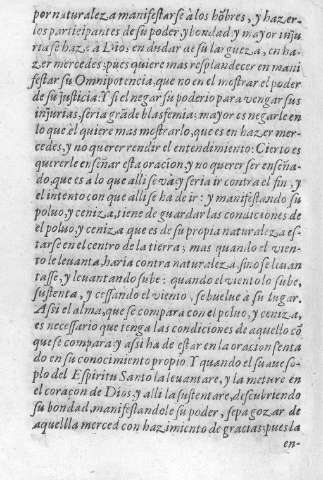 por naturaleza manifestarse à los hõbres, y hazer-
los participantes de su poder, y bondad y mayor inju
ria se haze a Dios en dudar de su largueza, en ha-
zer mercedes, pues quiere mas resplandecer en mani
festar su Omnipotencia, que no en el mostrar el poder
de su justicia: Y si el negar su poderio para vengar sus
injurias, seria grãde blasfemia: mayor es negarle en
lo que el quiere mas mostrarlo, que es en hazer mer-
cedes, y no querer rendir el entendimiento: Cierto es
quererle enseñar esta oracion, y no querer ser enseña-
do, que es a lo que alli se va: y seria ir contra el fin, y
el intento con que alli se ha de ir: y manifestando su
poluo, y ceniza, tiene de guardar las condiciones de
el poluo, y ceniza que es de su propia naturaleza es-
tarse en el centro de la tierra; mas quando el vien-
to le leuanta, haria contra naturaleza, sino se leuan
tasse, y leuantando sube: quando el viento lo sube,
sustenta, y cessando el viento, se buelue à su lugar.
Assi el alma, que se compara con el poluo, y ceniza,
es necessario que tenga las condiciones de aquello cõ
que se compara y assi ha de estar en la oracion senta
do en su conocimiento propio. Y quando el suaue so-
plo del Espiritu Santo la leuantare, y la metiere en
el coraçon de Dios, y alli la sustentare, descubriendo
su bondad, manifestandole su poder, sepa gozar de
aquella merced con hazimiento de gracias: pues la
en-